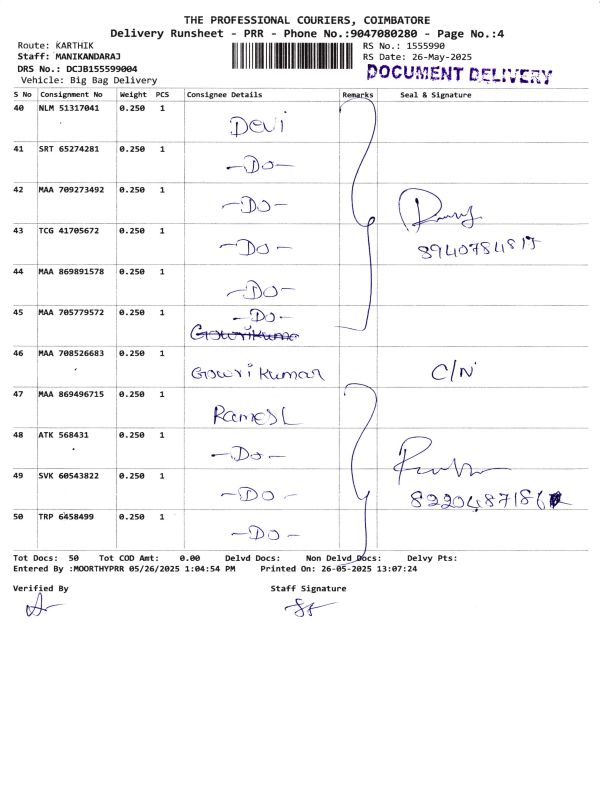 THE PROFESSIONAL COURIERS, COIMBATORE
Delivery Runsheet - PRR - Phone No.:9047080280 - Page No.:4
Route: KARTHIK RS No.: 1555990
Staff: MANIKANDARAJ RS Date: 26-May-2025
DRS No.: DCJB155599004 DOCUMENT DELIVERY
Vehicle: Big Bag Delivery
S No Consignment No Weight PCS Consignee Details Remarks Seal & Signature
40 NLM 51317041 0.250 1 Devi
41 SRT 65274281 0.250 1 -Do-
42 MAA 709273492 0.250 1 -Do-
43 TCG 41705672 0.250 1 -Do-
44 MAA 869891578 0.250 1 -Do-
45 MAA 705779572 0.250 1 -Do-
Gowrikuma
46 MAA 708526683 0.250 1 Gowri kumar C/N
47 MAA 869496715 0.250 1 Ramesh
48 ATK 568431 0.250 1 -Do-
49 SVK 60543822 0.250 1 -Do-
50 TRP 6458499 0.250 1 -Do-
Tot Docs: 50 Tot COD Amt: 0.00 Delvd Docs: Non Delvd Docs: Delvy Pts:
Entered By :MOORTHYPRR 05/26/2025 1:04:54 PM Printed On: 26-05-2025 13:07:24
Verified By Staff Signature